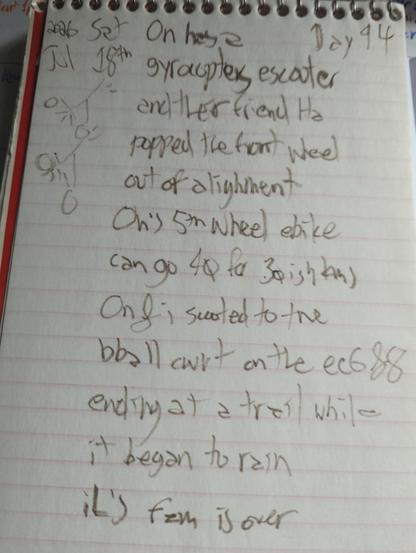 2026 Sat On has a Day 94
Jul 18th gyrocopter escooter
and their friend Ha
popped the front wheel
out of alighment
On's 5th wheel ebike
can go 40 for 30ish kms
On & i scooted to the
bball cwrt on the ec688
ending at a trail while
it began to rain
iL's fam is over